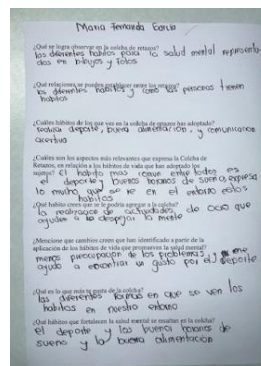 Maria Fernanda Garcia
¿Qué se logra observar en la colcha de retazos?
los diferentes habitos para la salud mental representa
dos en dibujos y fotos
¿Qué relaciones se pueden establecer entre los retazos?
los diferentes habitos y como las personas tienen
habitos
¿Cuáles hábitos de los que ves en la colcha de retazos has adoptado?
realizar deporte, buena alimentación, y comunicacion
asertiva
¿Cuáles son los aspectos más relevantes que expresa la Colcha de
Retazos, en relación a los hábitos de vida que han adoptado los
sujetos? El habito mas comun entre todos es
el deporte y buenos horarios de sueno, expresa
lo mucho que se ve en el entorno estos
habitos
¿Qué hábito crees que se le podría agregar a la colcha?
la realizacion de actividades de ocio que
ayuden a despejar la mente
¿Mencione que cambios creen que han identificado a partir de la
aplicación de los hábitos de vida que promueven la salud mental?
menos preocupacion de los problemas, me
ayudo a encontrar un gusto por el deporte
¿Qué es lo que más te gusta de la colcha?
las diferentes formas en que se ven los
habitos en nuestro entorno
¿Qué hábitos que fortalecen la salud mental se resaltan en la colcha?
el deporte y los buenos horarios de
sueno y la buena alimentación